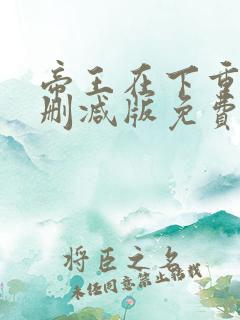 帝王在下重
删减版免费
将臣之名
未经同意禁止转载